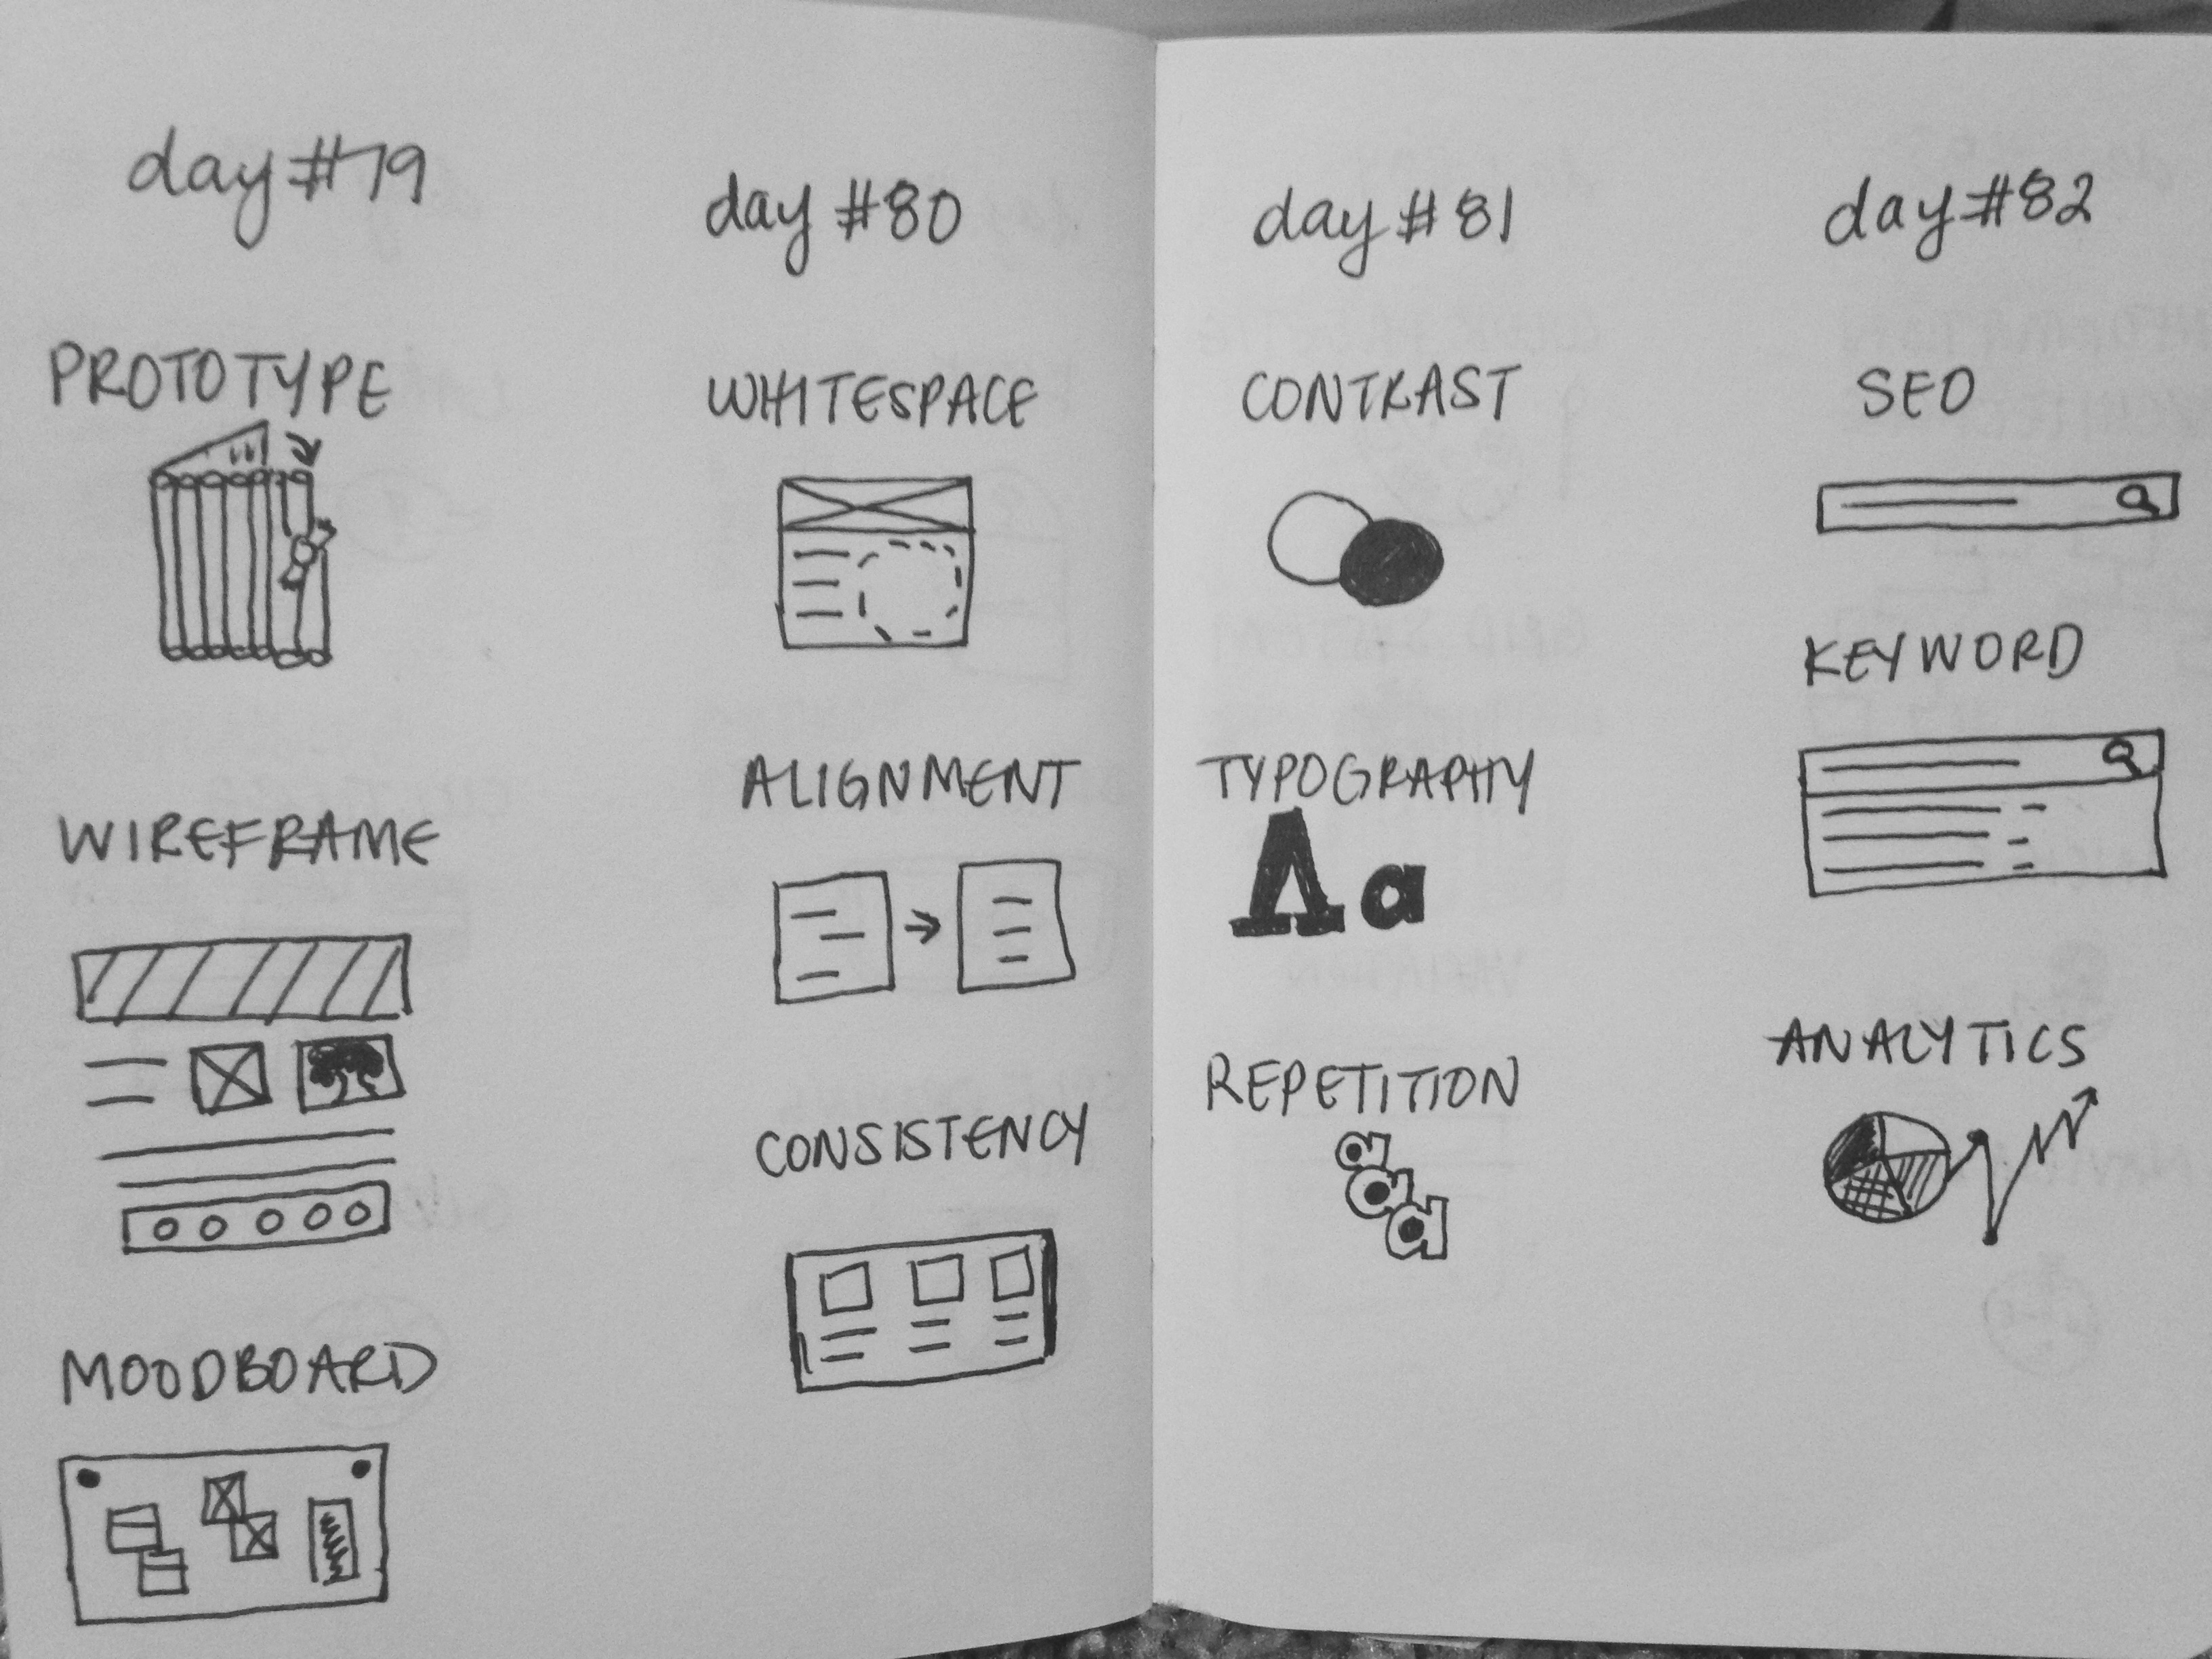 day #79
PROTOTYPE
WIREFRAME
MOODBOARD
day #80
WHITESPACE
ALIGNMENT
CONSISTENCY
day #81
CONTRAST
TYPOGRAPHY
Aa
REPETITION
a
a
a
day #82
SEO
KEYWORD
ANALYTICS